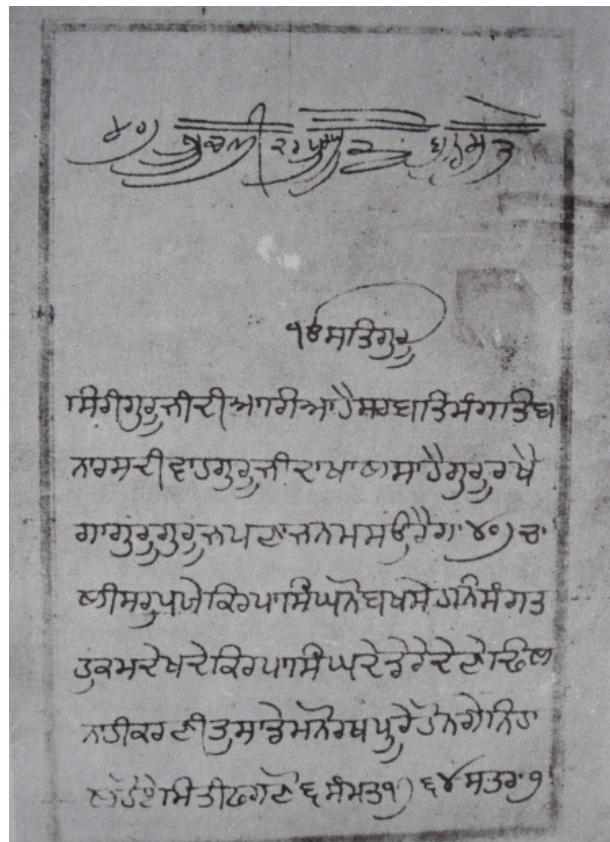 ੧ਓ ਸਤਿਗੁਰੂ
ਸਿਰੀ ਗੁਰੂ ਜੀ ਦੀ ਆਗਿਆ ਹੈ ਸਰਬਤਿ ਸੰਗਤਿ ਬ
ਨਾਰਸ ਦੀ ਵਾਹਗੁਰੂ ਜੀ ਦਾ ਖਾਲਸਾ ਹੈ ਗੁਰੂ ਰਖੈ
ਗਾ ਗੁਰੂ ਗੁਰੂ ਜਪਣਾ ਜਨਮ ਸਉਰੈਗਾ ੪੦) ਚਾ
ਲੀ ਸਰੁਪਯੇ ਕਿਰਪਾ ਸਿੰਘ ਨੋ ਬਖਸੇ ਹਨਿ ਸੰਗਤ
ਹੁਕਮ ਦੇਖਦੇ ਕਿਰਪਾ ਸਿੰਘ ਦੇ ਡੇਰੈ ਦੇਣੇ ਢਿਲ
ਨਾਹੀ ਕਰਣੀ ਤੁਸਾਡੇ ਮਨੋਰਥ ਪੂਰੇ ਹੋਨਗੇ ਨਿਹਾ
ਲ ਹੋਣੇ ਮਿਤੀ ਫਗਣੋ ੬ ਸੰਮਤ ੧੭੬੪ ਸਤਰਾ ੭